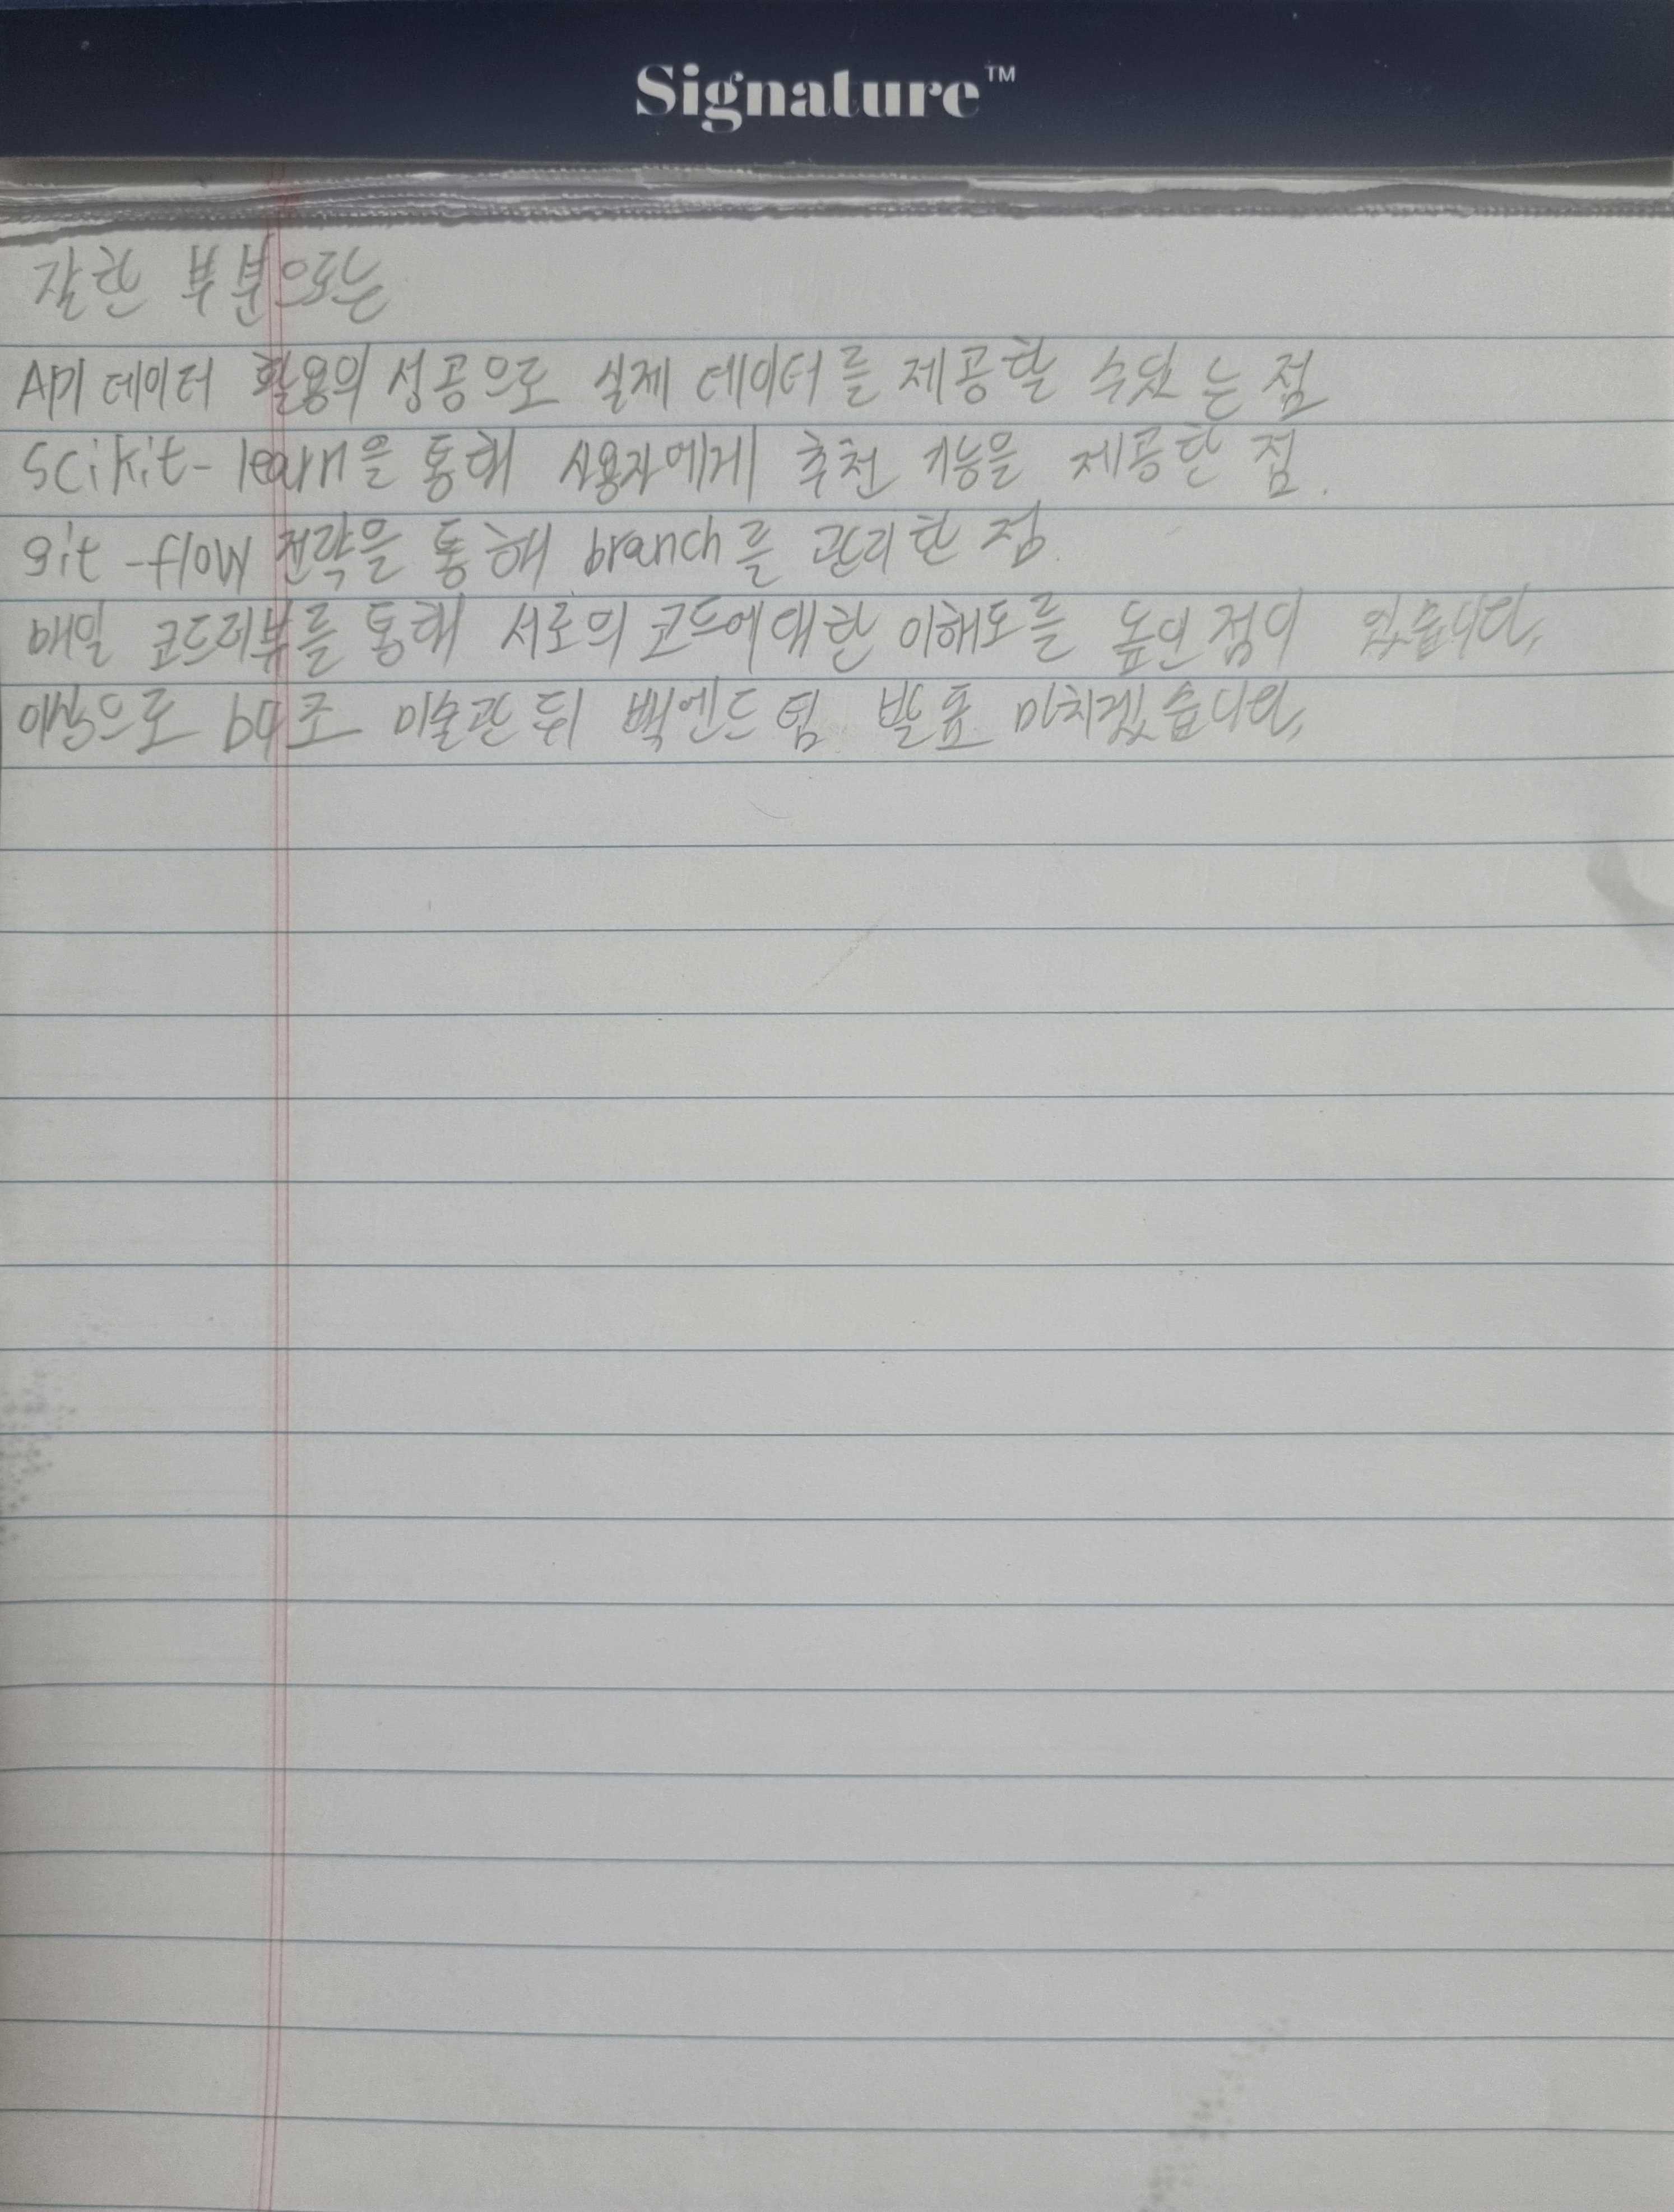 Signature™
잘한 부분으로는
API 데이터 활용의 성공으로 실제 데이터를 제공할 수있는 점
scikit-learn을 통해 사용자에게 추천 기능을 제공한 점.
git-flow 전략을 통해 branch를 관리한 점.
매일 코드리뷰를 통해 서로의 코드에대한 이해도를 높인 점이 있습니다.
이상으로 b4조 미술관 뒤 백엔드 팀 발표 마치겠습니다.